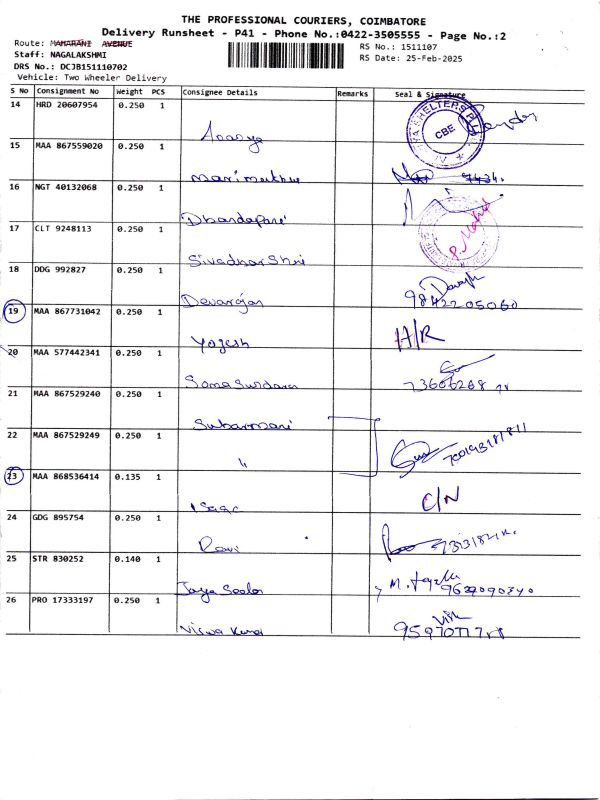 THE PROFESSIONAL COURIERS, COIMBATORE
Delivery Runsheet - P41 - Phone No.:0422-3505555 - Page No.:2
Route: MAHARANI AVENUE
RS No.: 1511107
Staff: NAGALAKSHMI
RS Date: 25-Feb-2025
DRS No.: DCJB151110702
Vehicle: Two Wheeler Delivery
S No Consignment No Weight PCS Consignee Details Remarks Seal & Signature
14 HRD 20607954 0.250 1
CBE
15 MAA 867559020 0.250 1
Marimuthu 9434.
16 NGT 40132068 0.250 1
Dhandapani
17 CLT 9248113 0.250 1
Sivadharshni
18 DDG 992827 0.250 1
Devarajan 9842205060
19 MAA 867731042 0.250 1
Yogesh H/R
20 MAA 577442341 0.250 1
Somasundara
21 MAA 867529240 0.250 1
Subarmani
22 MAA 867529249 0.250 1
"
23 MAA 868536414 0.135 1
Isaac C/N
24 GDG 895754 0.250 1
Ravi
25 STR 830252 0.140 1
Jaya Seelan
26 PRO 17333197 0.250 1
Viswa Kumar